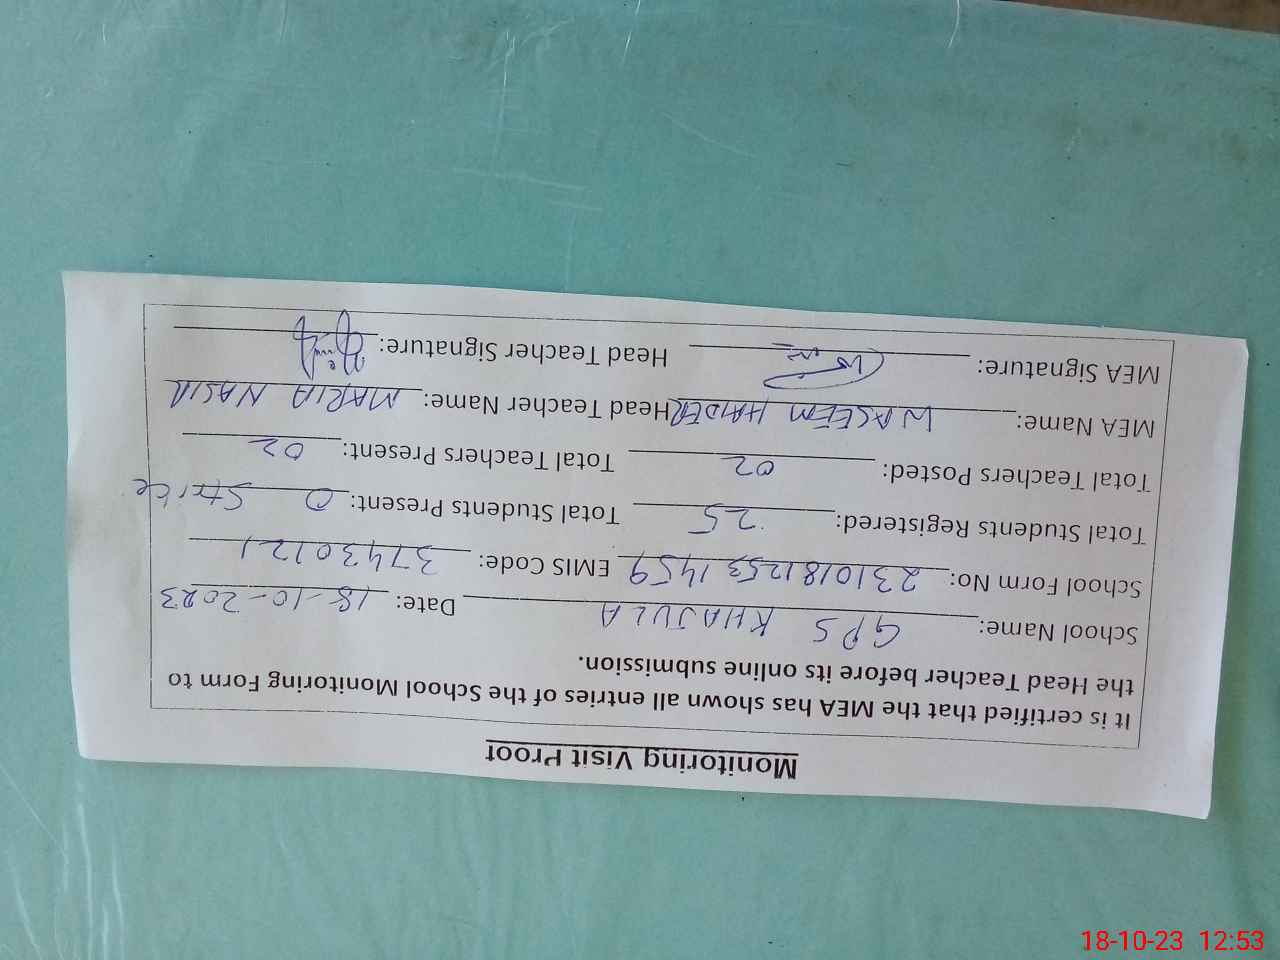 Monitoring Visit Proof
It is certified that the MEA has shown all entries of the School Monitoring Form to
the Head Teacher before its online submission.
School Name: GPS KHAJULA Date: 18-10-2023
School Form No: 23101812531459 EMIS Code: 37430121
Total Students Registered: 25 Total Students Present: 0 Strike
Total Teachers Posted: 02 Total Teachers Present: 02
MEA Name: WASEEM HAIDER Head Teacher Name: MARIA NASIR
MEA Signature: Head Teacher Signature:
18-10-23 12:53